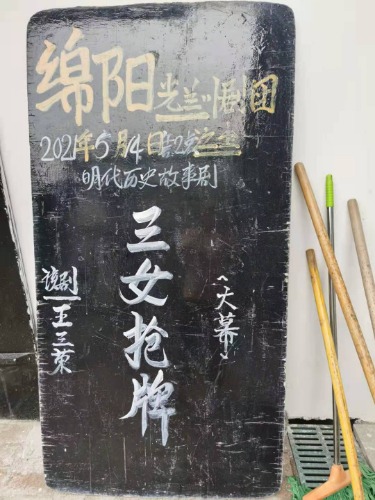 绵阳光兰川剧团
2021年5月14日
明代历史故事剧
三女抢牌
《大幕》
说剧 王三荣